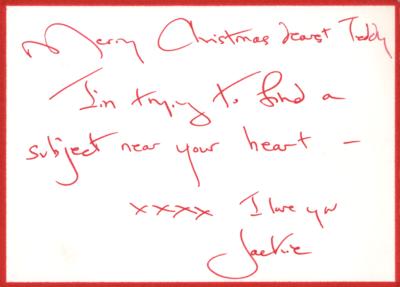 Merry Christmas dearest Teddy
I'm trying to find a
subject near your heart –
xxxx I love you
Jackie